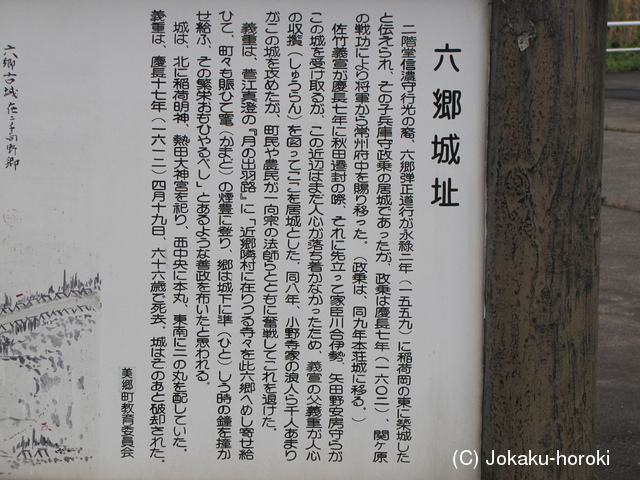 六郷城址
二階堂信濃守行光の裔、六郷弾正道行が永禄二年（一五五九）に稲荷岡の東に築城した
と伝えられ、その子兵庫守政乗の居城であったが、政乗は慶長七年（一六〇二）、関ヶ原
の戦功により将軍から常州府中を賜り移った。（政乗は、同九年本荘城に移る。）
佐竹義宣が慶長七年に秋田遷封の際、それに先立って家臣川合伊勢、矢田野安房守らが
この城を受け取るが、この近辺はまだ人心が落ち着かなかったため、義宣の父義重が人心
の収攬（しゅうらん）を図ってここを居城とした。同八年、小野寺家の浪人ら千人あまり
がこの城を攻めたが、町民や農民が一向宗の法師らとともに奮戦してこれを退けた。
義重は、菅江真澄の『月の出羽路』に「近郷隣村に在りつる寺々を此六郷へめし寄せ給
ひて、町々も賑ひて竃（かまど）の煙豊に登り、郷は城下に準（ひと）しう時の鐘を撞か
せ給ふ、その繁栄おもひやるべし」とあるような善政を布いたと思われる。
城は、北に稲荷明神、熱田大神宮を祀り、西中央に本丸、東南に二の丸を配していた。
義重は、慶長十七年（一六一二）四月十九日、六十六歳で死去、城はそのあと破却された。
美郷町教育委員会
六郷古城
(C) Jokaku-horoki